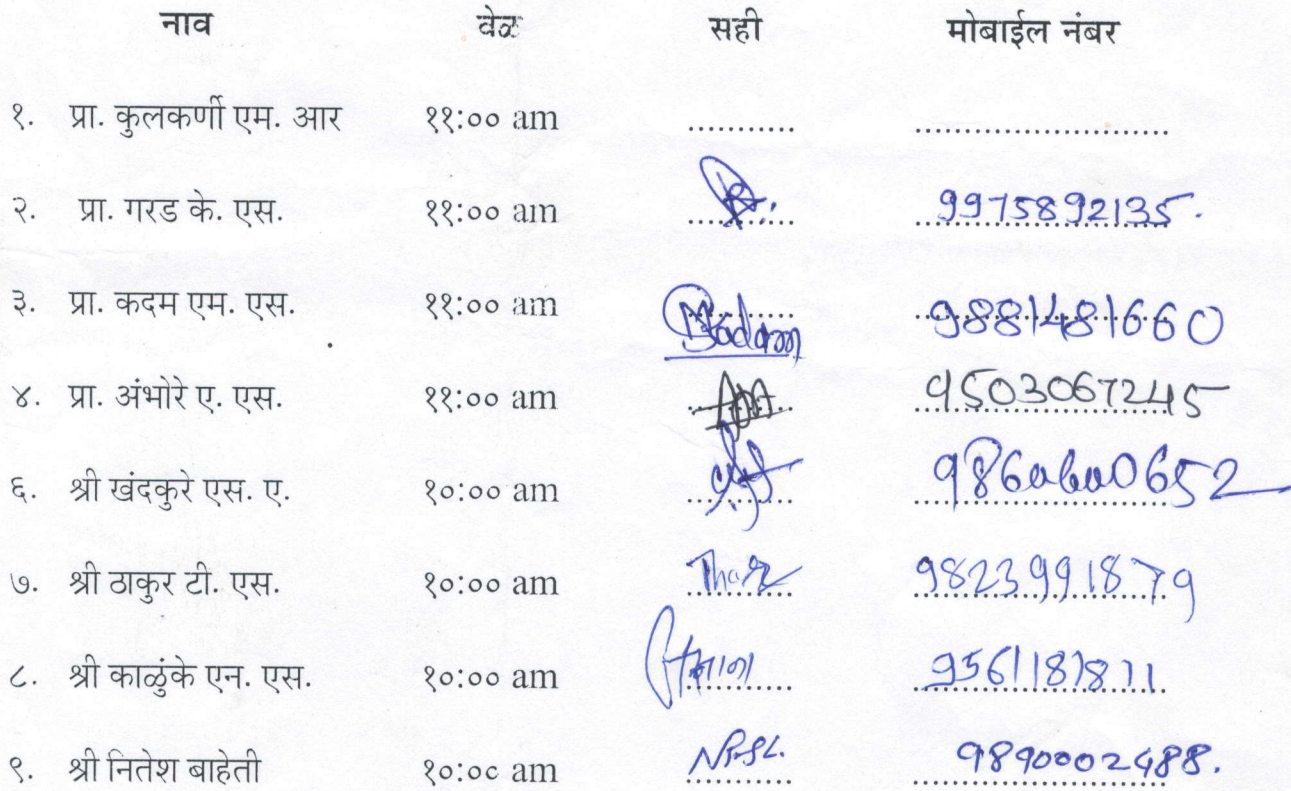 नाव वेळ सही मोबाईल नंबर
१. प्रा. कुलकर्णी एम. आर ११:०० am ........... ..........................
२. प्रा. गरड के. एस. ११:०० am 9975892135.
३. प्रा. कदम एम. एस. ११:०० am Kadam 9881481660
४. प्रा. अंभोरे ए. एस. ११:०० am 9503067245
६. श्री खंदकुरे एस. ए. १०:०० am
७. श्री ठाकुर टी. एस. १०:०० am 9823991879
८. श्री काळुंके एन. एस. १०:०० am 9561181811
९. श्री नितेश बाहेती १०:०० am 9890002488.